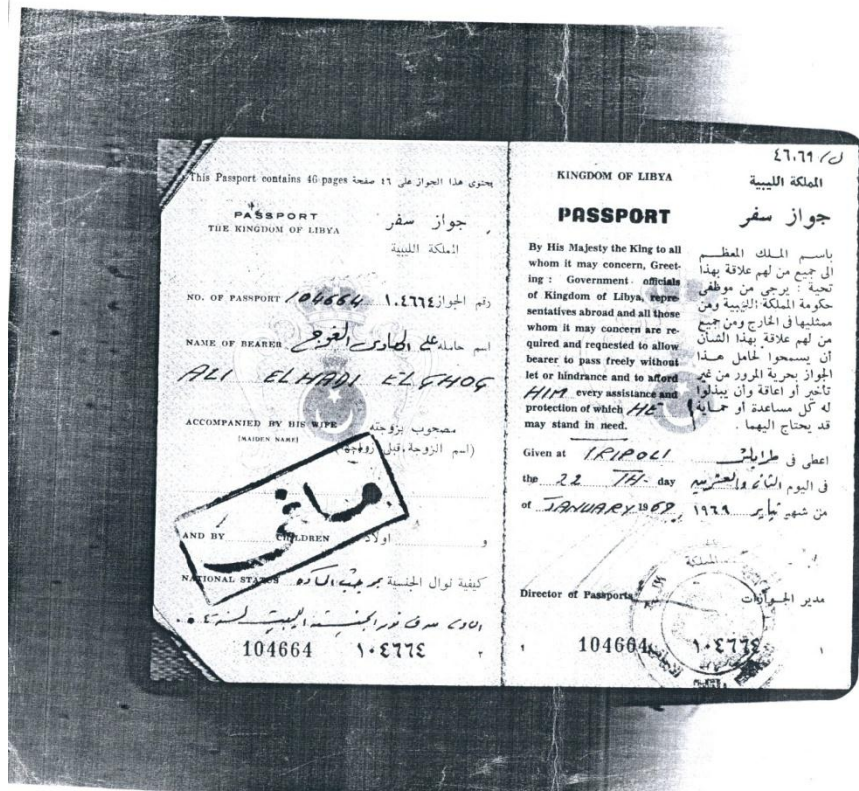 This Passport contains 46 pages يحتوى هذا الجواز على ٤٦ صفحة
PASSPORT جواز سفر
THE KINGDOM OF LIBYA المملكة الليبية
NO. OF PASSPORT 104664 ١٠٤٦٦٤ رقم الجواز
NAME OF BEARER اسم حامله على الهادى الغوج
ALI ELHADI ELGHOG
ACCOMPANIED BY HIS WIFE مصحوب بزوجته
(MAIDEN NAME) (اسم الزوجة قبل زواجها)
AND BY CHILDREN و اولاد
NATIONAL STATUS كيفية نوال الجنسية بموجب المادة
104664 ١٠٤٦٦٤ ٢
٤٦٠٦٩ / ل
KINGDOM OF LIBYA المملكة الليبية
PASSPORT جواز سفر
By His Majesty the King to all
whom it may concern, Greet-
ing : Government officials
of Kingdom of Libya, repre-
sentatives abroad and all those
whom it may concern are re-
quired and requested to allow
bearer to pass freely without
let or hindrance and to afford
HIM every assistance and
protection of which HE
may stand in need.
باسم الملك المعظم
الى جميع من لهم علاقة بهذا
تحية : يرجى من موظفى
حكومة المملكة الليبية ومن
ممثليها فى الخارج ومن جميع
من لهم علاقة بهذا الشأن
أن يسمحوا لحامل هذا
الجواز بحرية المرور من غير
تأخير أو اعاقة وأن يبذلوا
له كل مساعدة أو حماية
قد يحتاج اليهما .
Given at TRIPOLI اعطى فى طرابلس
the 22 TH- day فى اليوم الثانى والعشرين
of JANUARY 1969 من شهر يناير ١٩٦٩
Director of Passports مدير الجوازات
١ 104664 ١٠٤٦٦٤ ١